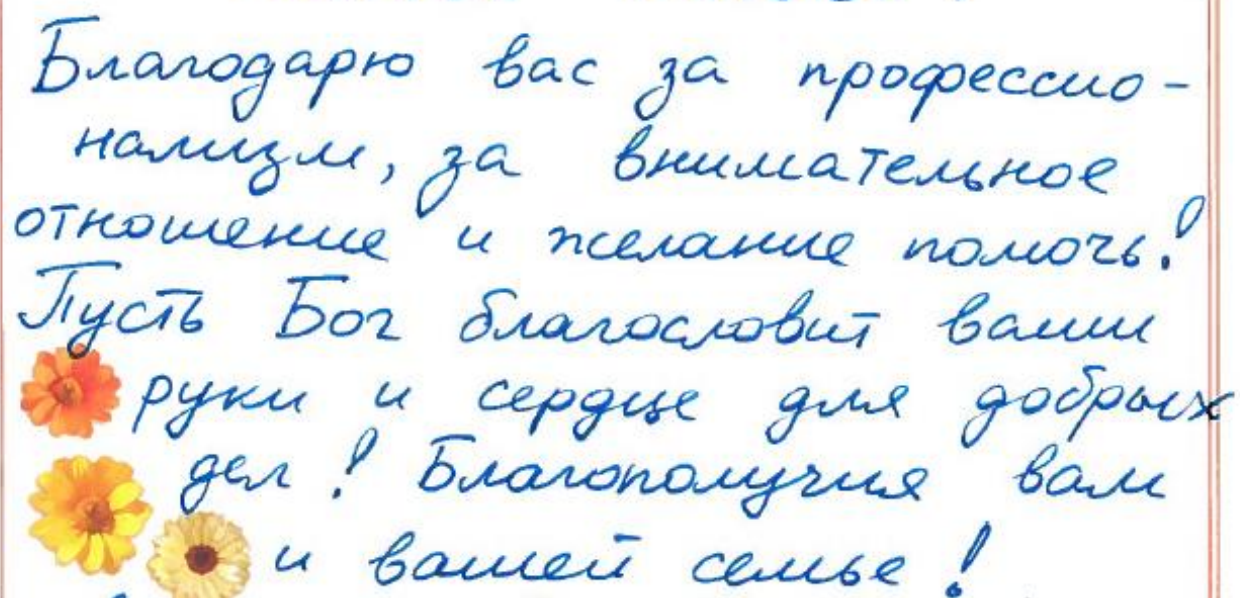 Благодарю вас за профессио-
нализм, за внимательное
отношение и желание помочь!
Пусть Бог благословит ваши
руки и сердце для добрых
дел! Благополучия вам
и вашей семье!